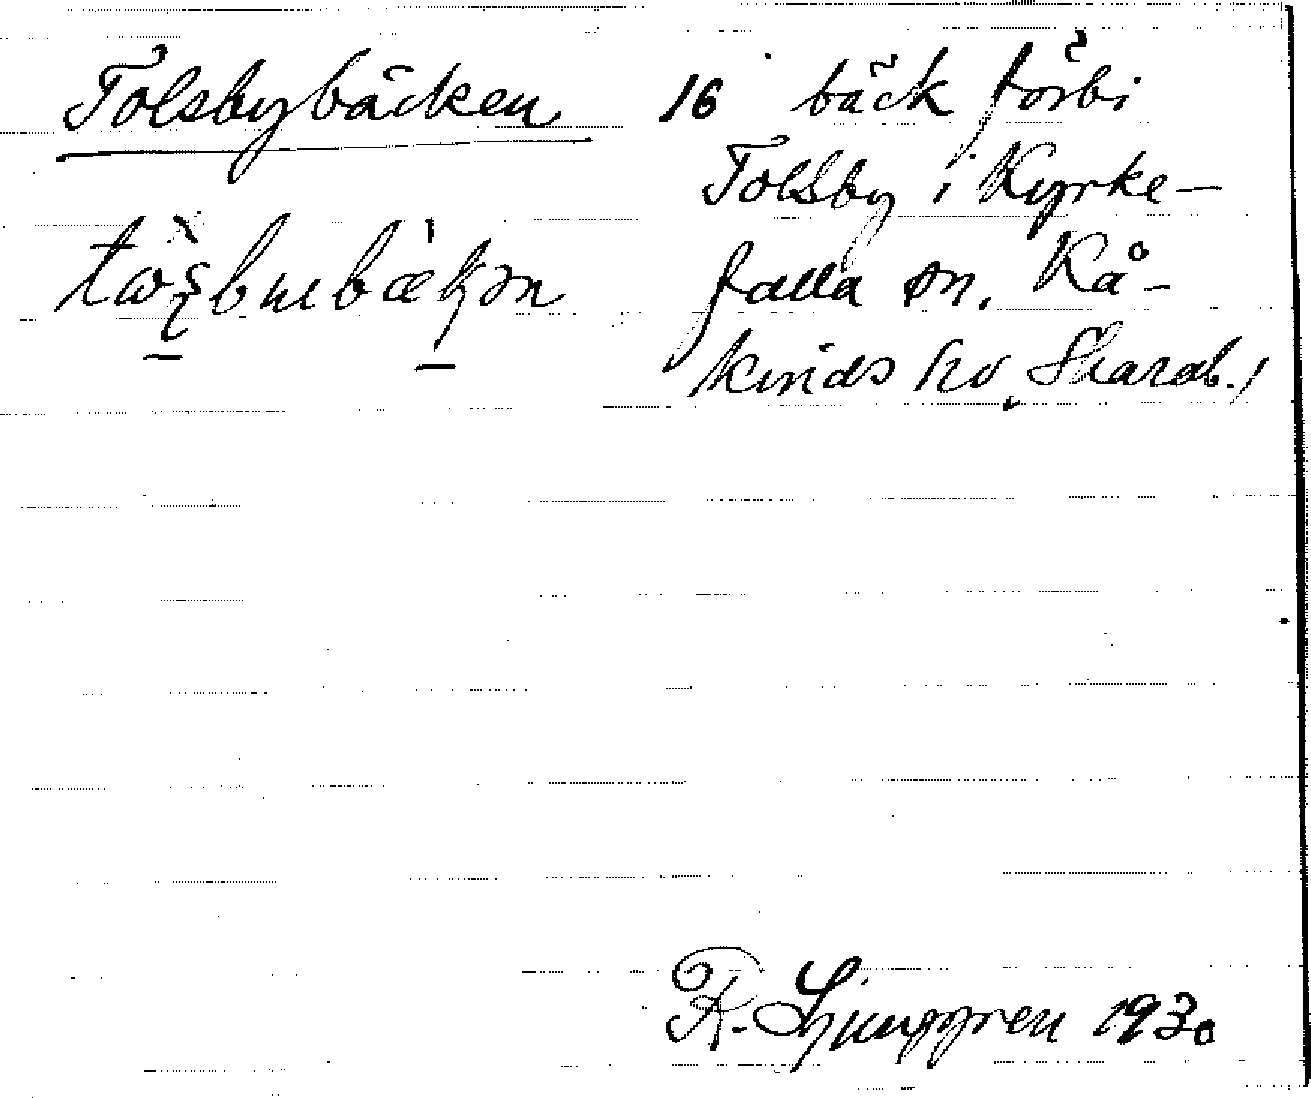 Tolsbybäcken 16 bäck förbi
Tolsby i Kyrke-
falla sn, Kå-
kinds hd, Skarab.l
R. Ljunggren 1930